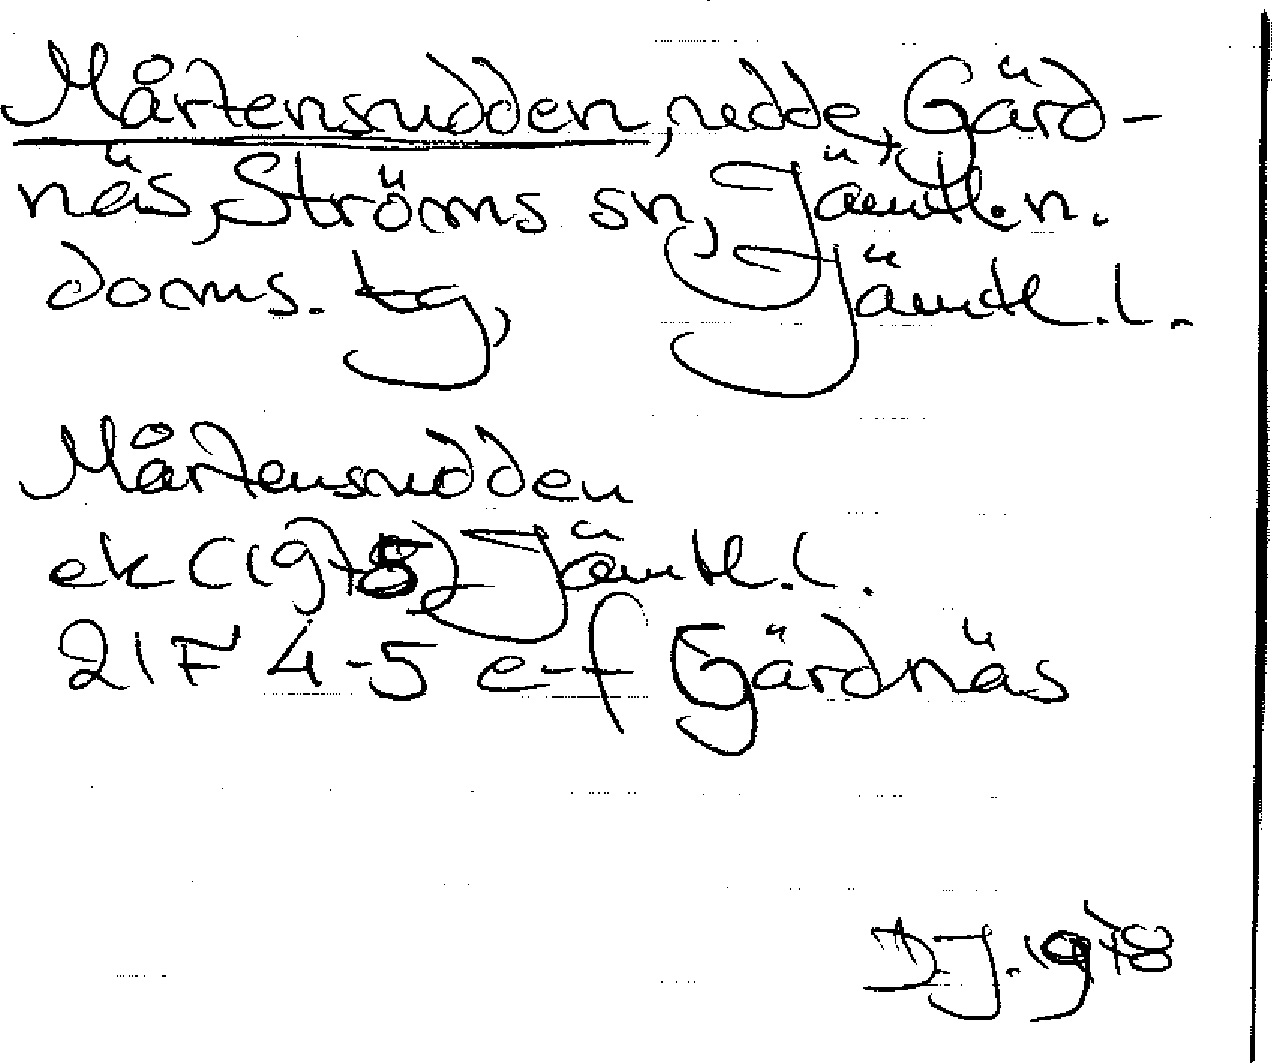 Mårtensrudden, rudde, Gärd-
näs, Ströms sn, Jämtl. n.
doms. tg, Jämtl. l.
Mårtensrudden
ek (1975) Jämtl. l.
21F 4-5 e-f Gärdnäs
DJ. 1978